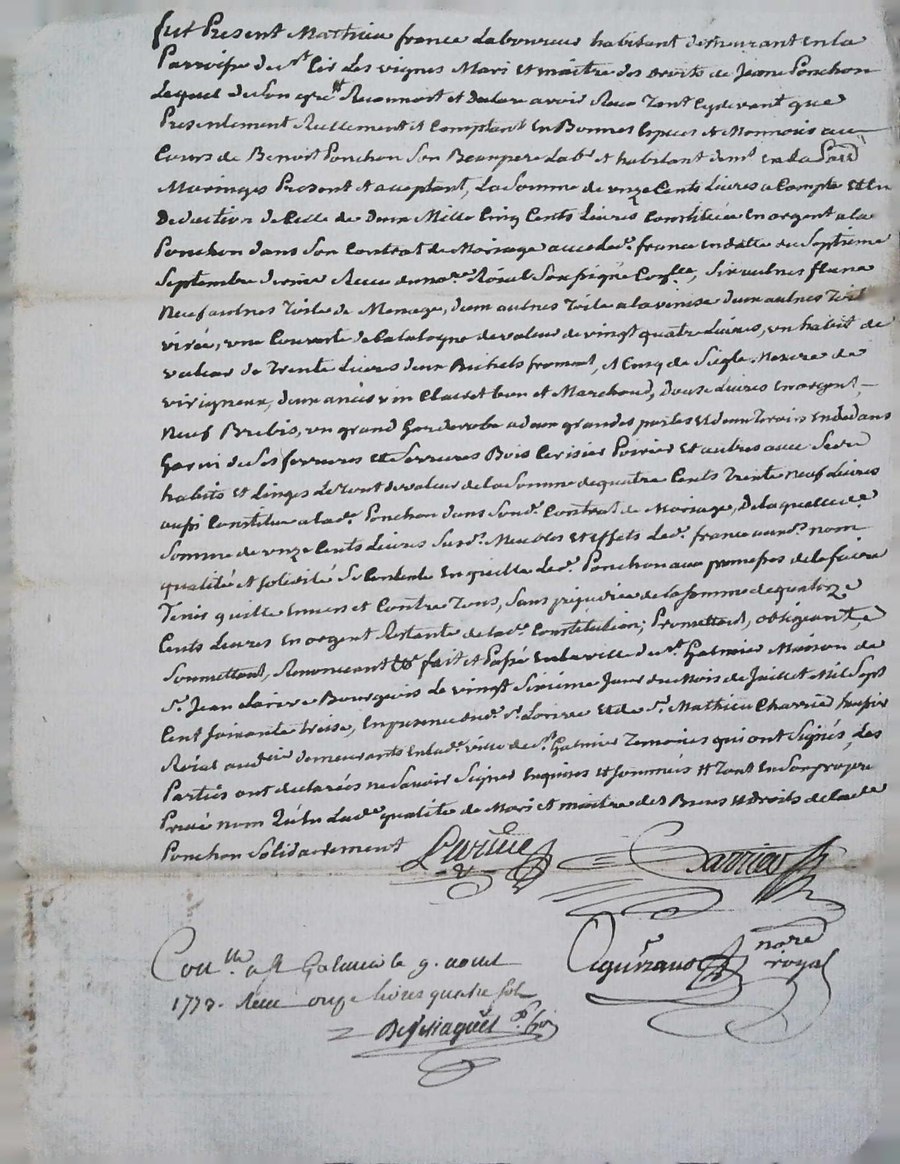 fut Present Mathieu france Laboureur habitant demeurant en la
Parroisse de st. Cir Les vignes Mari et maitre des droits de Jeane Ponchon
Lequel de son gre Reconnoit et declare avoir Receu tant cydevant que
Presentement Reellement et Comptant En Bonnes Especes et Monnoies au
Cours de Benoit Ponchon Son Beaupere Labr. et habitant en la
Maringes Present et acceptant, La Somme de unze Cents Livres a Compte et En
Deduction de Celle de Deux Mille Cinq Cents Livres Constituée En argent a la
Ponchon dans Son Contrat de Mariage avec led. france en datte du Septieme
Septembre dernier Receu du nore. Roial Soussigné, Six aulnes
Neuf aulnes toile de Menage, deux aulnes toile a la venise deux aulnes toile
virée, une Couverte de Catalogne de valeur de vingt quatre Livres, un habit de
valeur de trente Livres deux Bichets froment, et Cinq de Segle Mesure de
virigneux, deux anées vin Clairet bon et Marchand, Douse Livres en argent
Neuf Brebis, un grand Garderobe a deux grandes portes et deux tiroirs En dedans
Garni de Ses ferrures et Serrures Bois Cerisier Poirier et autres avec Se
habits et Linges Le tout de valeur de la Somme de quatre Cents trente neuf Livres
aussi Constitué a lad. Ponchon dans Sond. Contrat de Mariage, De laquelle
Somme de unze Cents Livres Susd. Meubles et effets led. france aud. nom
qualité et solidité Se Contente En quitte led. Ponchon aux promesses de le faire
Tenir quitte Envers et Contre Tous, Sans prejudice de la somme de quatorze
Cents Livres En argent Restante de lad. Constitution; Promettant, obligeant,
Soumettant, Renonceant fait et Passé En la ville de st. Galmier Maison de
sr. Jean Bourgeois Le vingt Sixieme Jour du Mois de Juillet Mil Sept
Cent soixante treise, En presence dud. sr. Et de sr. Mathieu Charrin huissier
Roial demeurants En lad. ville de st. Galmier temoins qui ont Signés, Les
Parties ont declarés ne Savoir Signer Enquises et sommées et tant En Son propre
Privé nom Qu'En Lad. qualité de Mari et maitre des Biens et Droits de lad.
Ponchon Solidairement
Charrin
nore
royal
Conlle. a st Galmier le 9. aout
1773. Receu onze livres quatre sol